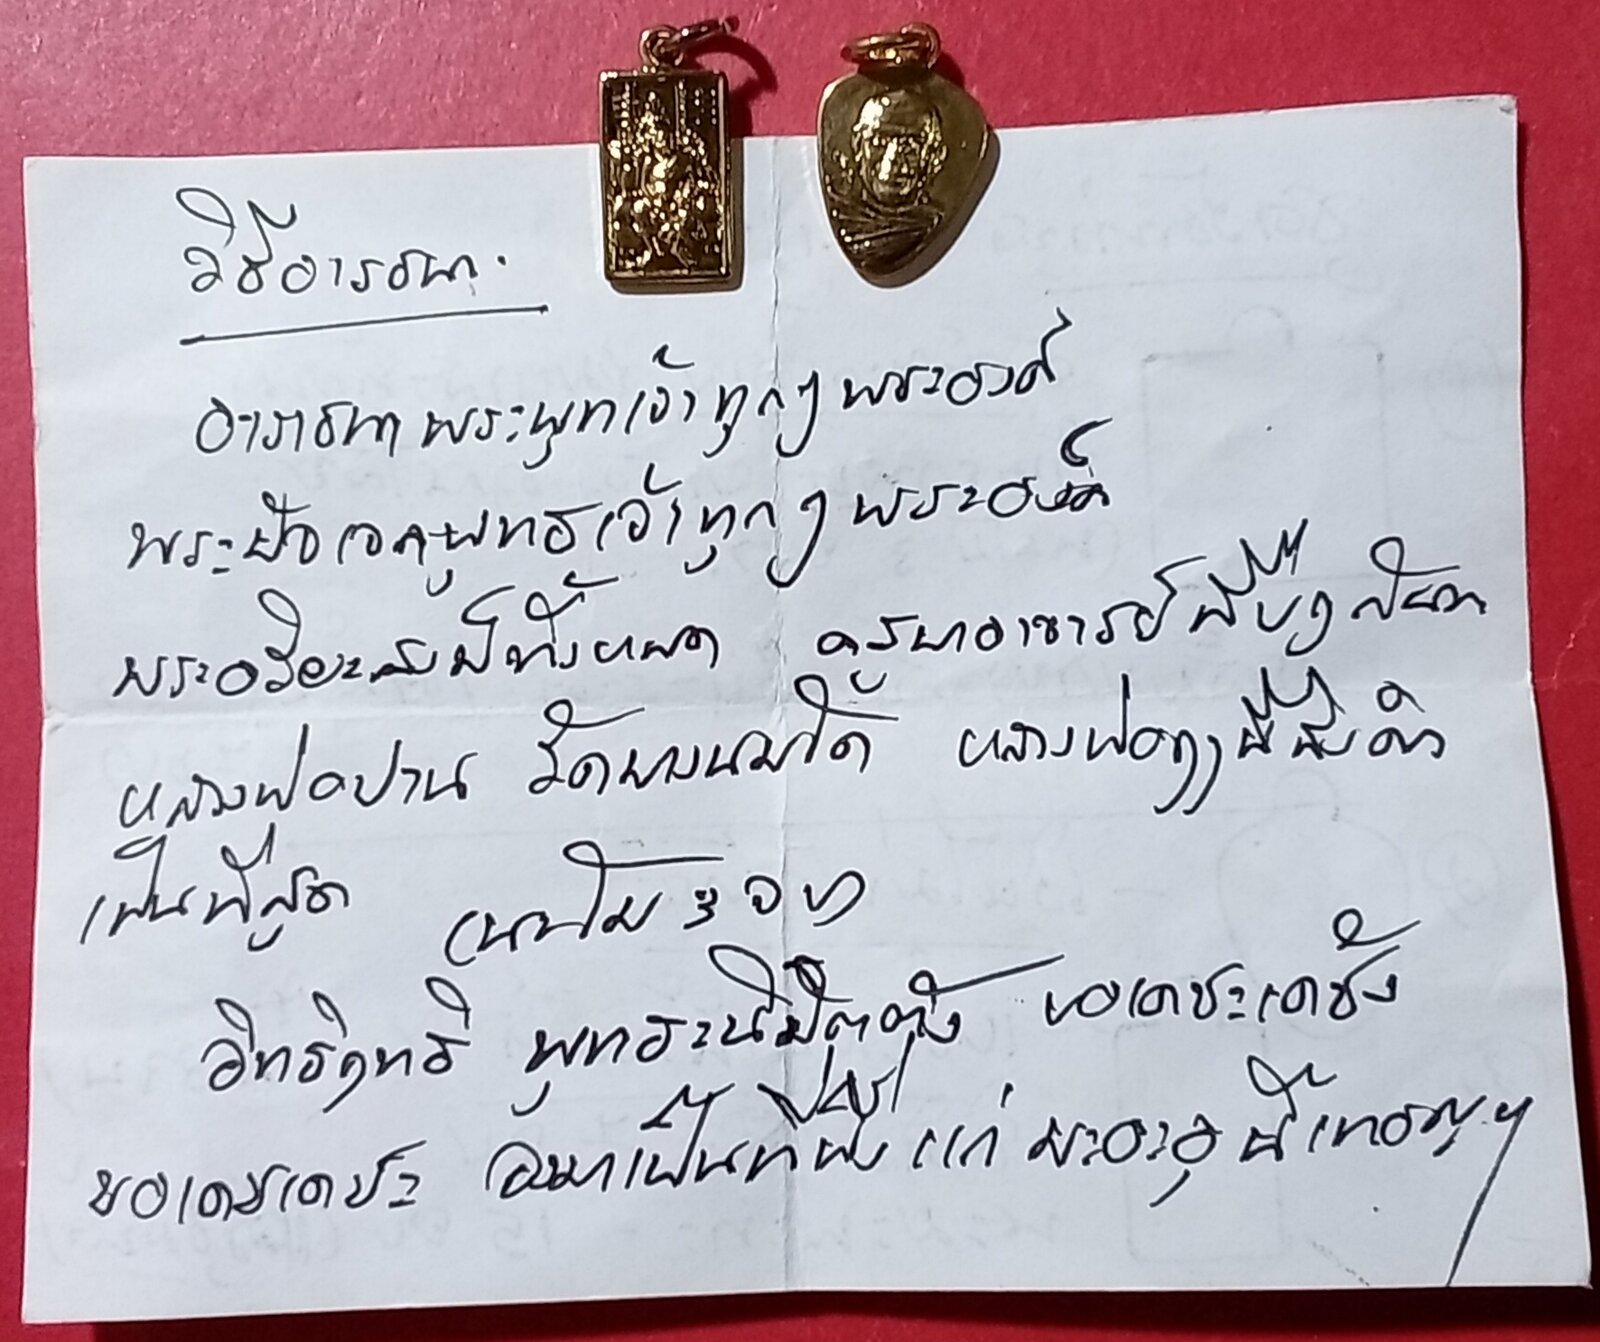 วิธีอาราธนา.
อาราธนาพระพุทธเจ้าทุกๆพระองค์
พระปัจเจคพุทธเจ้าทุกๆพระองค์
พระอริยะสงฆ์ทั้งหมด ครูบาอาจารย์
หลวงพ่อปาน วัดบางนมโค หลวงพ่อ
เป็นที่สุด (นะโม ๓ จบ)
อิทธิฤทธิ พุทธะนิมิตตัง ขอเดชะเดชัง
ขอเดชเดชะ จงมาเป็นที่พึ่งแก่ มะอะอุ นี้เทอญฯ